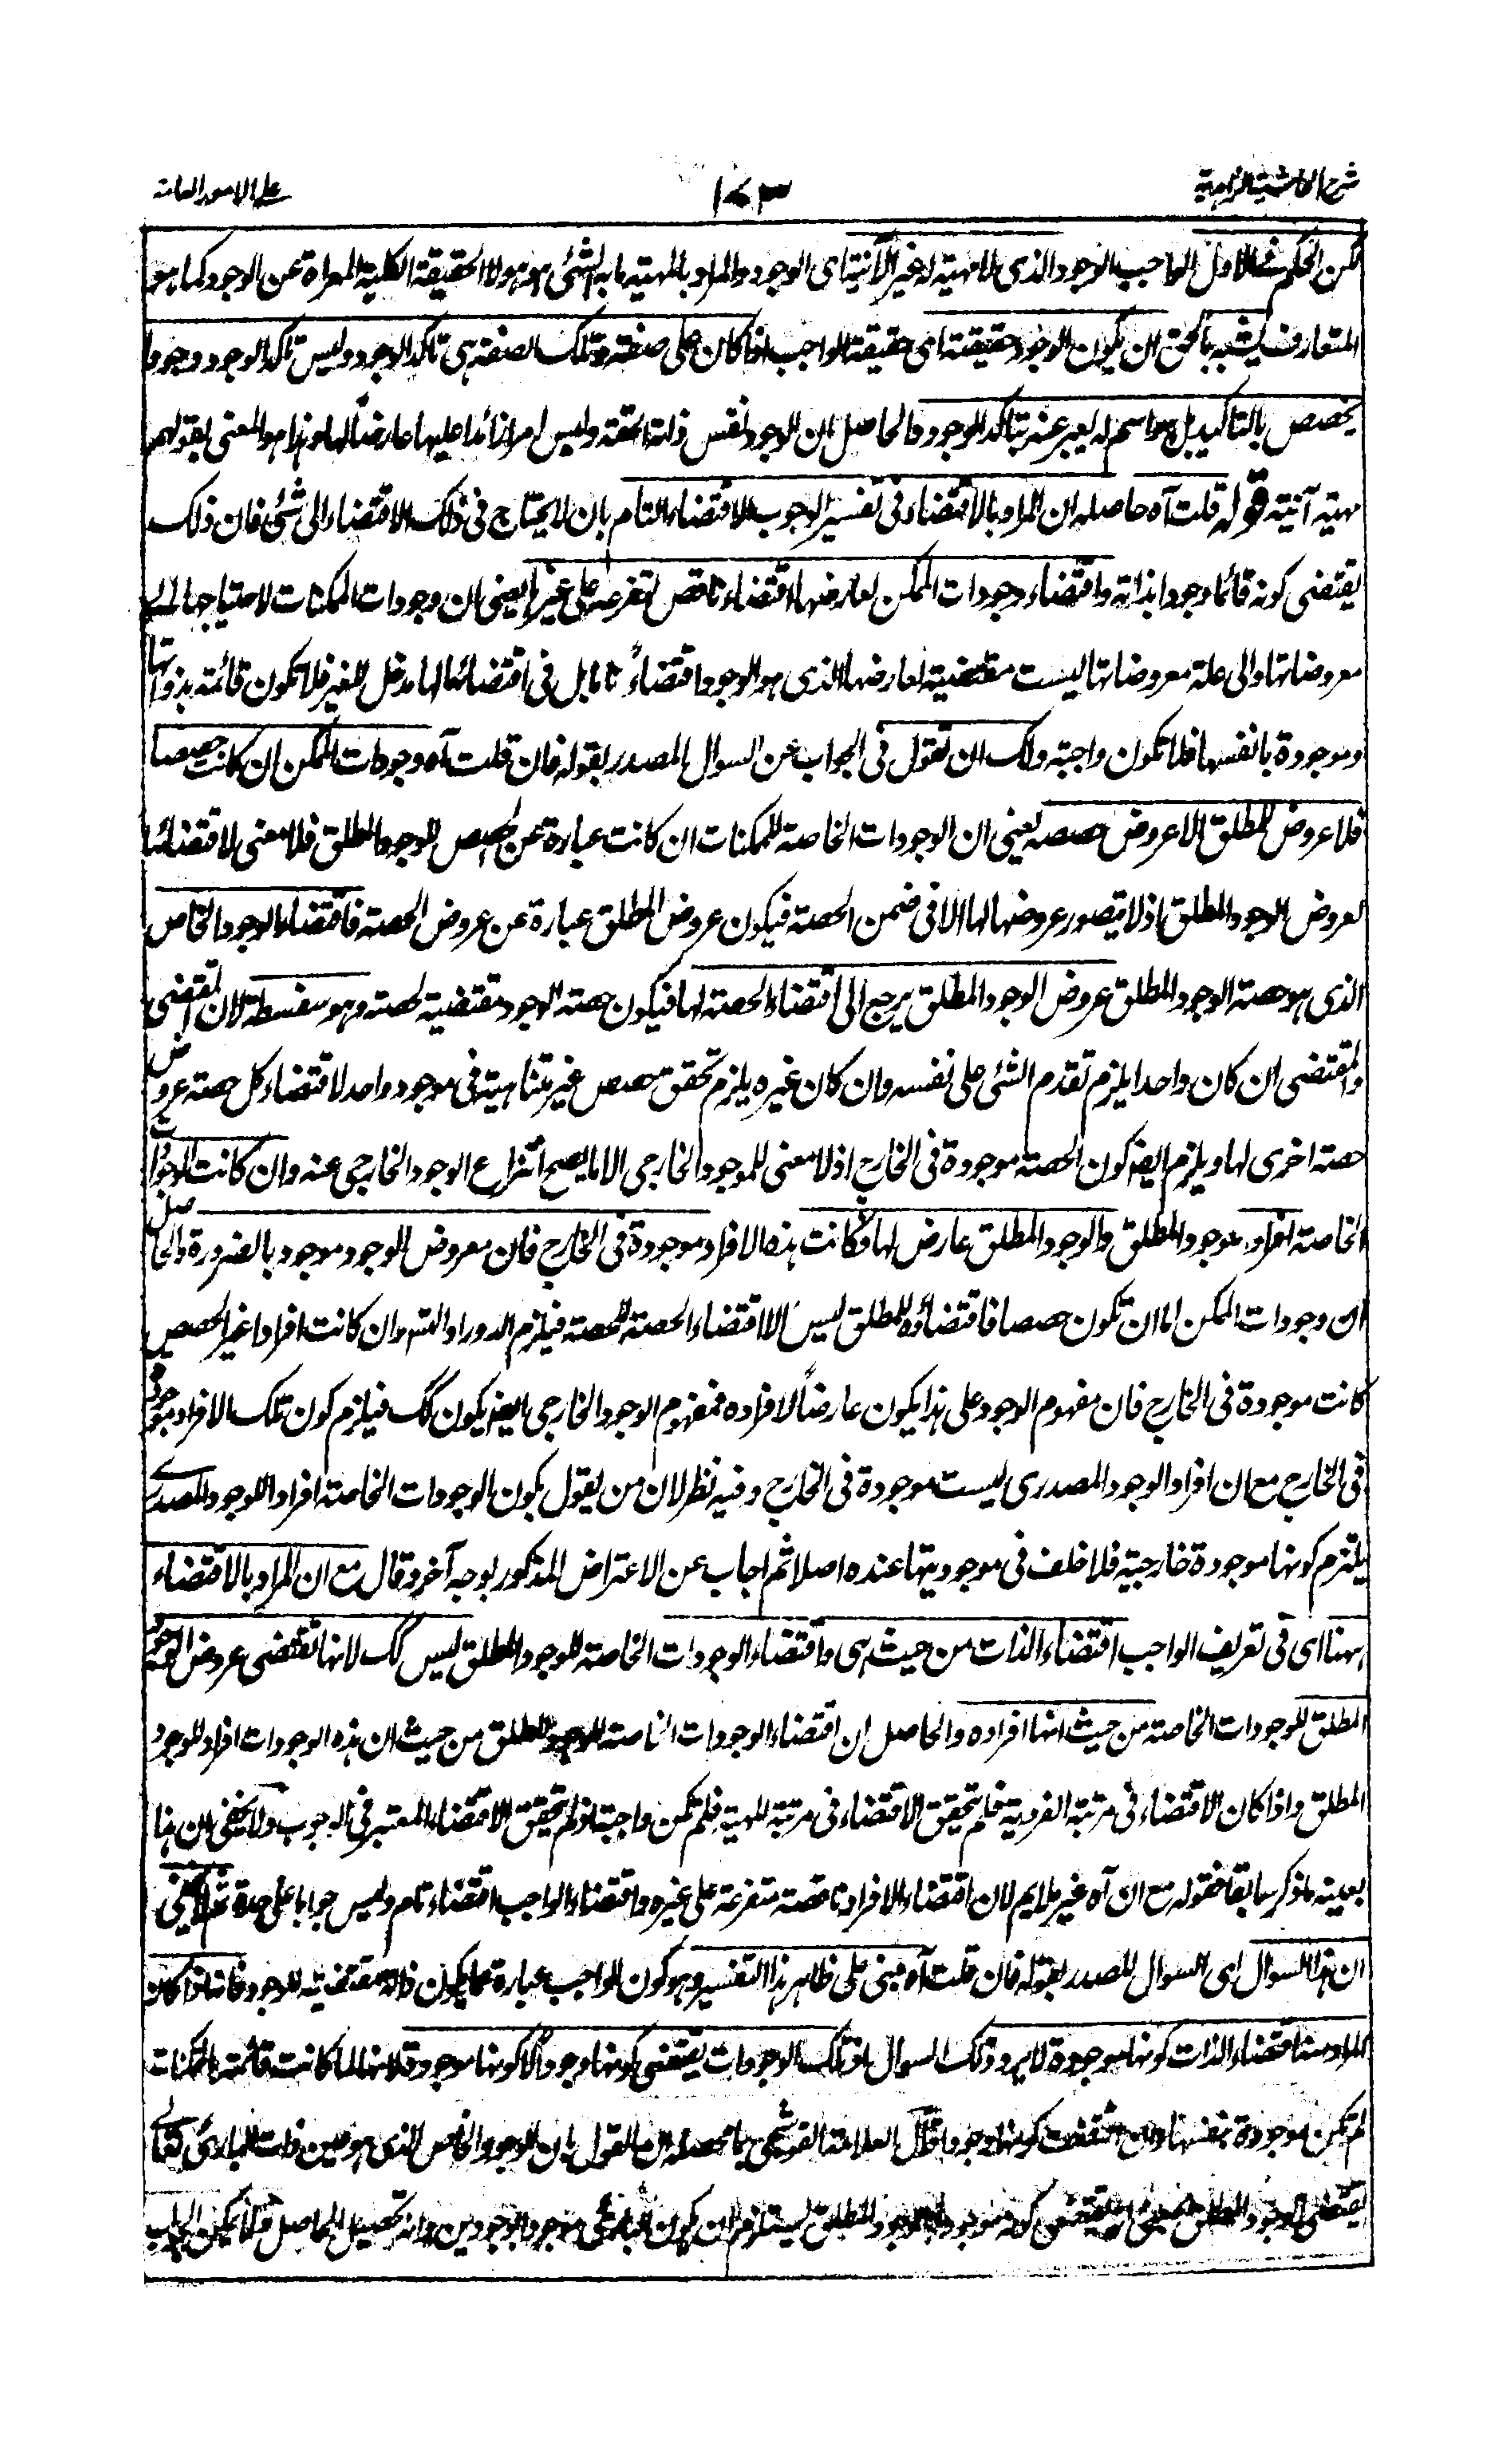 شرح الحاشية الزاهدية
١٧٣
على الامور العامة
لكن الحكم فى الاول الواجب الوجود الذى لا مهية له غير الآنية اى الوجود والمراد بالمهية ما به الشئ هو هو لا الحقيقة الكلية المعراة عن الوجود كما هو
المتعارف يشبه بالحق ان يكون الوجود حقيقته اى حقيقة الواجب اذا كان على صفة وتلك الصفة هى تاكد الوجود وليس تاكد الوجود وجودا
يخصص بالتاكيد بل هو اسم له يعبر عنه بتاكد الوجود والحاصل ان الوجود نفس ذاته الحقة وليس امرا زائدا عليها عارضا لها وهذا هو المعنى بقولهم
مهية آنية قوله قلت آه حاصله ان المراد بالاقتضاء فى تفسير الوجوب الاقتضاء التام بان لا يحتاج فى ذلك الاقتضاء الى شئ فان ذلك
يقتضى كونه قائما وجودا بذاته واقتضاء وجودات الممكن لعارضها اقتضاء ناقص لتفرعه على غيرها يعنى ان وجودات الممكنات لاحتياجها الى
معروضاتها والى علة معروضاتها ليست مقتضية لعارضها الذى هو الوجود اقتضاءً تاما بل فى اقتضائها لها مدخل للغير فلا تكون قائمة بذواتها
وموجودة بانفسها فلا تكون واجبة ولك ان تقول فى الجواب عن السوال المصدر بقوله فان قلت آه وجودات الممكن ان كانت حصصا
فلا عروض للمطلق الا عروض حصصه يعنى ان الوجودات الخاصة للممكنات ان كانت عبارة عن الحصص للوجود المطلق فلا معنى لاقتضائها
لعروض الوجود المطلق اذ لا يتصور عروضها لها الا فى ضمن الحصة فيكون عروض المطلق عبارة عن عروض الحصة فاقتضاء الوجود الخاص
الذى هو حصة الوجود المطلق عروض الوجود المطلق يرجع الى اقتضاء الحصة لها فيكون حصة الوجود مقتضية لحصة وهو سفسطة لان المقتضى
والمقتضى ان كان واحدا يلزم تقدم الشئ على نفسه وان كان غيره يلزم تحقق حصص غير متناهية فى موجود واحد لاقتضاء كل حصة عروض
حصة اخرى لها ويلزم ايضا كون الحصة موجودة فى الخارج اذ لا معنى للموجود الخارجى الا ما يصح انتزاع الوجود الخارجى عنه وان كانت الوجودات
الخاصة افراد موجود المطلق والوجود المطلق عارض لها فكانت هذه الافراد موجودة فى الخارج فان معروض الوجود موجود بالضرورة والحاصل
ان وجودات الممكن اما ان تكون حصصا فاقتضاؤه للمطلق ليس الا اقتضاء الحصة للحصة فيلزم الدور او التسم وان كانت افرادا غير الحصص
كانت موجودة فى الخارج فان مفهوم الوجود على هذا يكون عارضاً لافراده فمفهوم الوجود الخارجى ايضا يكون كك فيلزم كون تلك الافراد موجودة
فى الخارج مع ان افراد الوجود المصدرى ليست موجودة فى الخارج وفيه نظر لان من يقول بكون الوجودات الخاصة افرادا للوجود المصدرى
يلتزم كونها موجودة خارجية فلا خلف فى موجوديتها عنده اصلا ثم اجاب عن الاعتراض المذكور بوجه آخر وقال مع ان المراد بالاقتضاء
ههنا اى فى تعريف الواجب اقتضاء الذات من حيث هى واقتضاء الوجودات الخاصة للوجود المطلق ليس كك لانها تقتضى عروض الوجود
المطلق للوجودات الخاصة من حيث انها افراده والحاصل ان اقتضاء الوجودات الخاصة للوجود المطلق من حيث ان هذه الوجودات افراد للوجود
المطلق واذا كان الاقتضاء فى مرتبة الفردية فلم تحقق الاقتضاء فى مرتبة المهية فلم تكن واجبة اذ لم تحقق الاقتضاء المعتبر فى الوجوب ولا يخفى ان هذا
بعينه ما ذكر سابقا فقوله مع ان آه غير ملايم لان اقتضاء الافراد ناقصة متفرعة على غيره واقتضاء الواجب اقتضاء تام وليس جوابا على حدة ثم لا يخفى
ان هذا السوال اى السوال المصدر بقوله فان قلت آه مبنى على ظاهر هذا التفسير وهو كون الواجب عبارة عما يكون ذاته مقتضية للوجود فانه اذا كان
المراد منه اقتضاء الذات كونها موجودة لا يرد ذلك السوال اذ تلك الوجودات يقتضى كونها وجودا لا كونها موجودة لانها لما كانت قائمة بالممكنات
لم تكن موجودة بنفسها كونها وجودا قال العلامة القوشجى ما محصله ان القول بان الوجود الخاص الذى هو عين ذات البارى تعالى
يقتضى الوجود المطلق كونه موجودا بالوجود المطلق يستلزم ان يكون موجودا بوجودين وانه تحصيل الحاصل